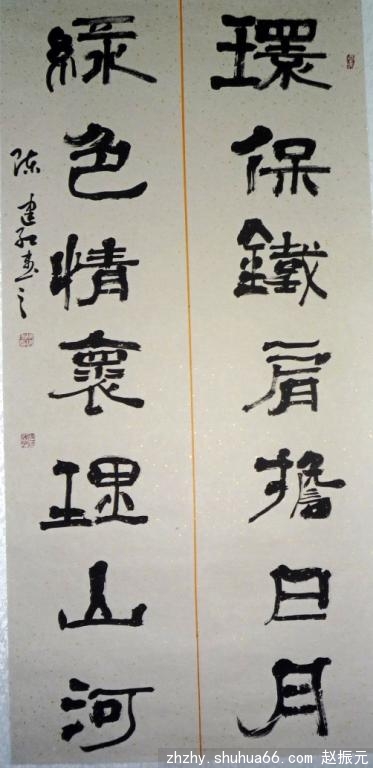 環保鐵肩擔日月
綠色情裹理山河
陈建红书之
zhzhy.shuhua66.com 赵振元